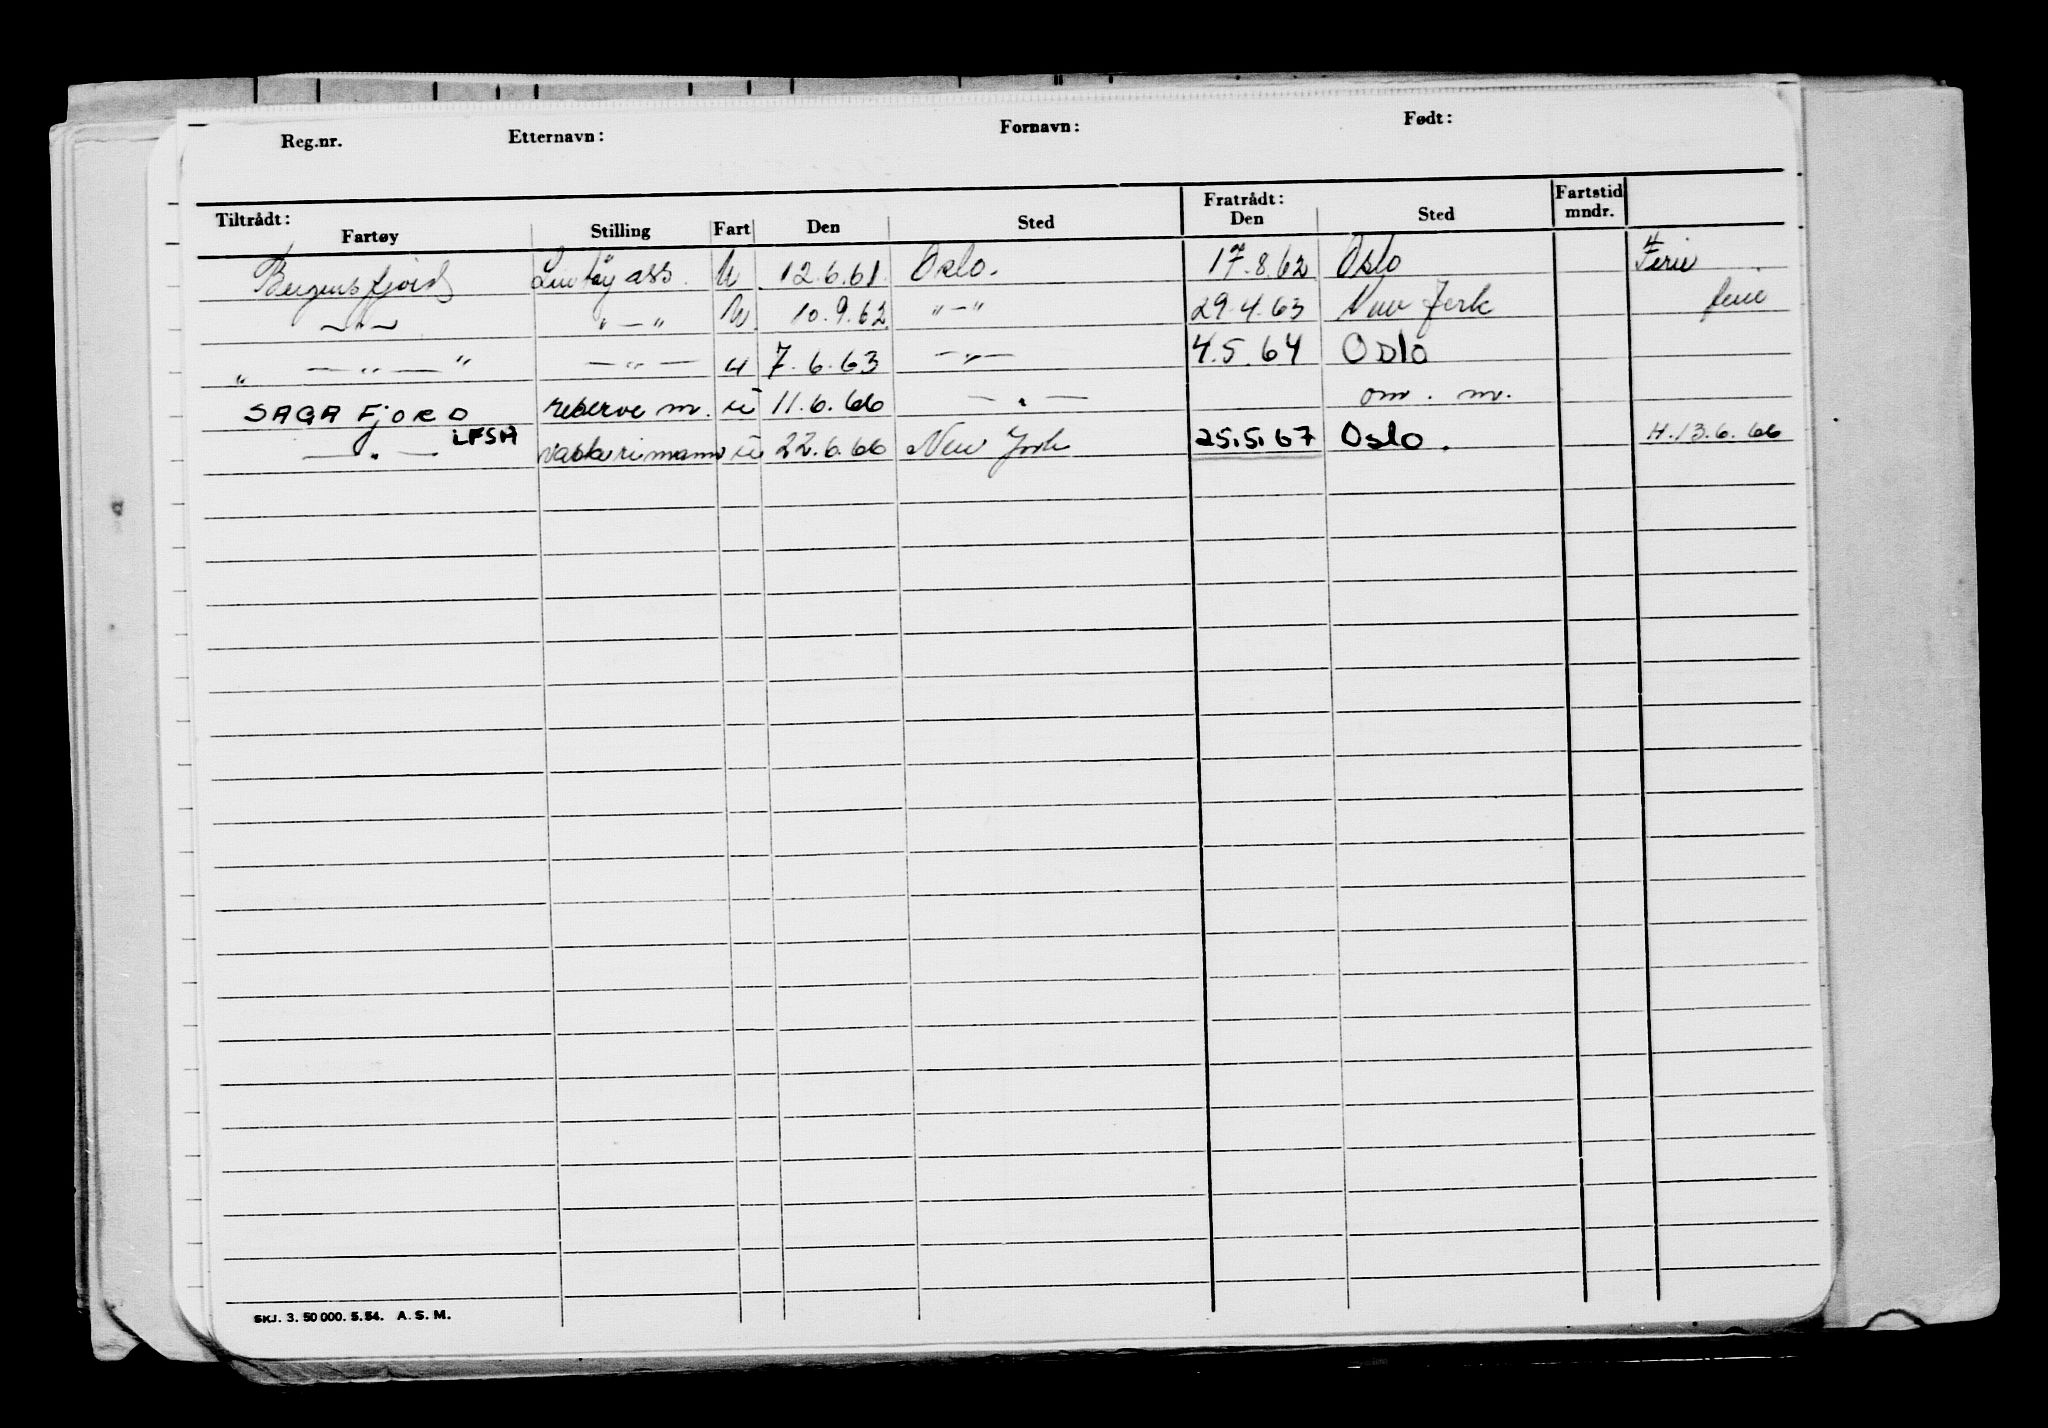 Reg.nr. Etternavn: Fornavn: Født:
Tiltrådt: Fratrådt: Fartstid
Fartøy Stilling Fart Den Sted Den Sted mndr.
Bergensfjord Lintøy ass. U 12.6.61. Oslo. 17.8.62 Oslo Ferie
—"— "—" U 10.9.62 "—" 29.4.63 New Jork ferie
" —"— " —"— u 7.6.63 —"— 4.5.64 Oslo
SAGAFjORD reserve m. u 11.6.66 —"— om. m.
—"— LFSH vaskerimann u 22.6.66 New Jork 25.5.67 Oslo. H.13.6.66
SKJ. 3. 50 000. 5.54. A.S.M.